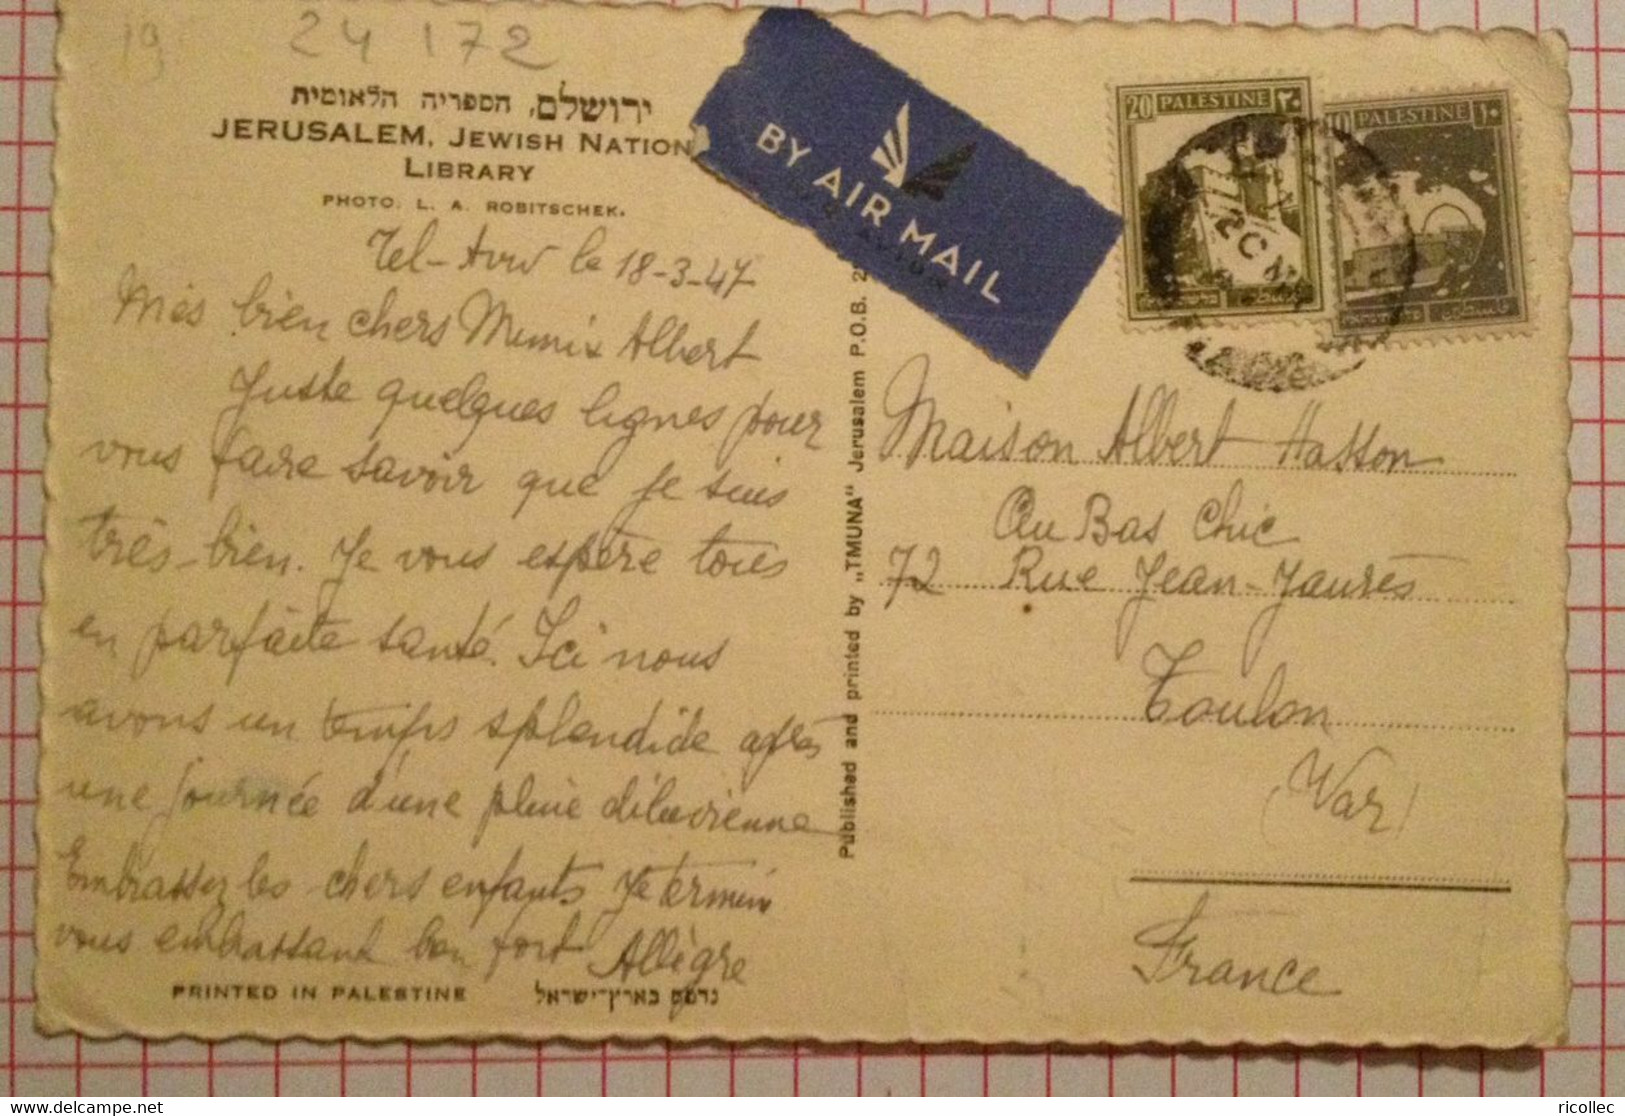 19
24 172
ירושלם, הספריה הלאומית
JERUSALEM, JEWISH NATION
LIBRARY
PHOTO. L. A. ROBITSCHEK.
Tel-Aviv le 18-3-47
Mes bien chers Mimi x Albert
Juste quelques lignes pour
vous faire savoir que je suis
très-bien. Je vous espère tous
en parfaite santé. Ici nous
avons un temps splendide après
une journée d'une pluie diluvienne
Embrassez les chers enfants Je termine
vous embrassant bon fort Allègre
PRINTED IN PALESTINE נדפס בארץ-ישראל
Published and printed by „TMUNA" Jerusalem P.O.B. 2
BY AIR MAIL
PAR AVION
20 PALESTINE ٢٠
10 PALESTINE ١٠
فلسطين
فلسطين
Maison Albert Hasson
Au Bas Chic
72 Rue Jean-Jaurès
Toulon
(Var)
France
ricollec